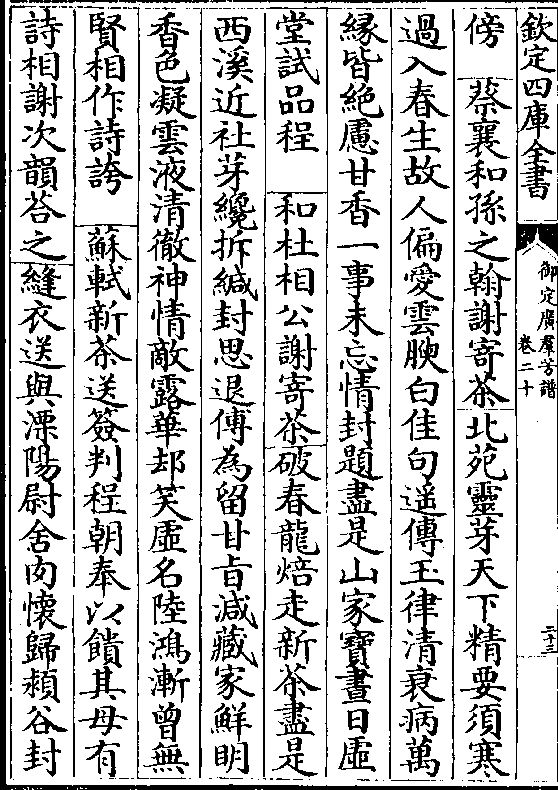 欽定四庫全書
御定廣羣芳譜
卷二十
二十三
傍　蔡襄和孫之翰謝寄茶北苑靈芽天下精要須寒
過入春生故人偏愛雲腴白佳句遥傳玉律清衰病萬
緣皆絶慮甘香一事未忘情封題盡是山家寶晝日虛
堂試品程　和杜相公謝寄茶破春龍焙走新茶盡是
西溪近社芽纔拆緘封思退傅為留甘㫖減藏家鮮明
香色凝雲液清徹神情敵露華却笑虛名陸鴻漸曾無
賢相作詩誇　蘇軾新茶送簽判程朝奉以饋其母有
詩相謝次韻荅之縫衣送與溧陽尉舍肉懷歸潁谷封